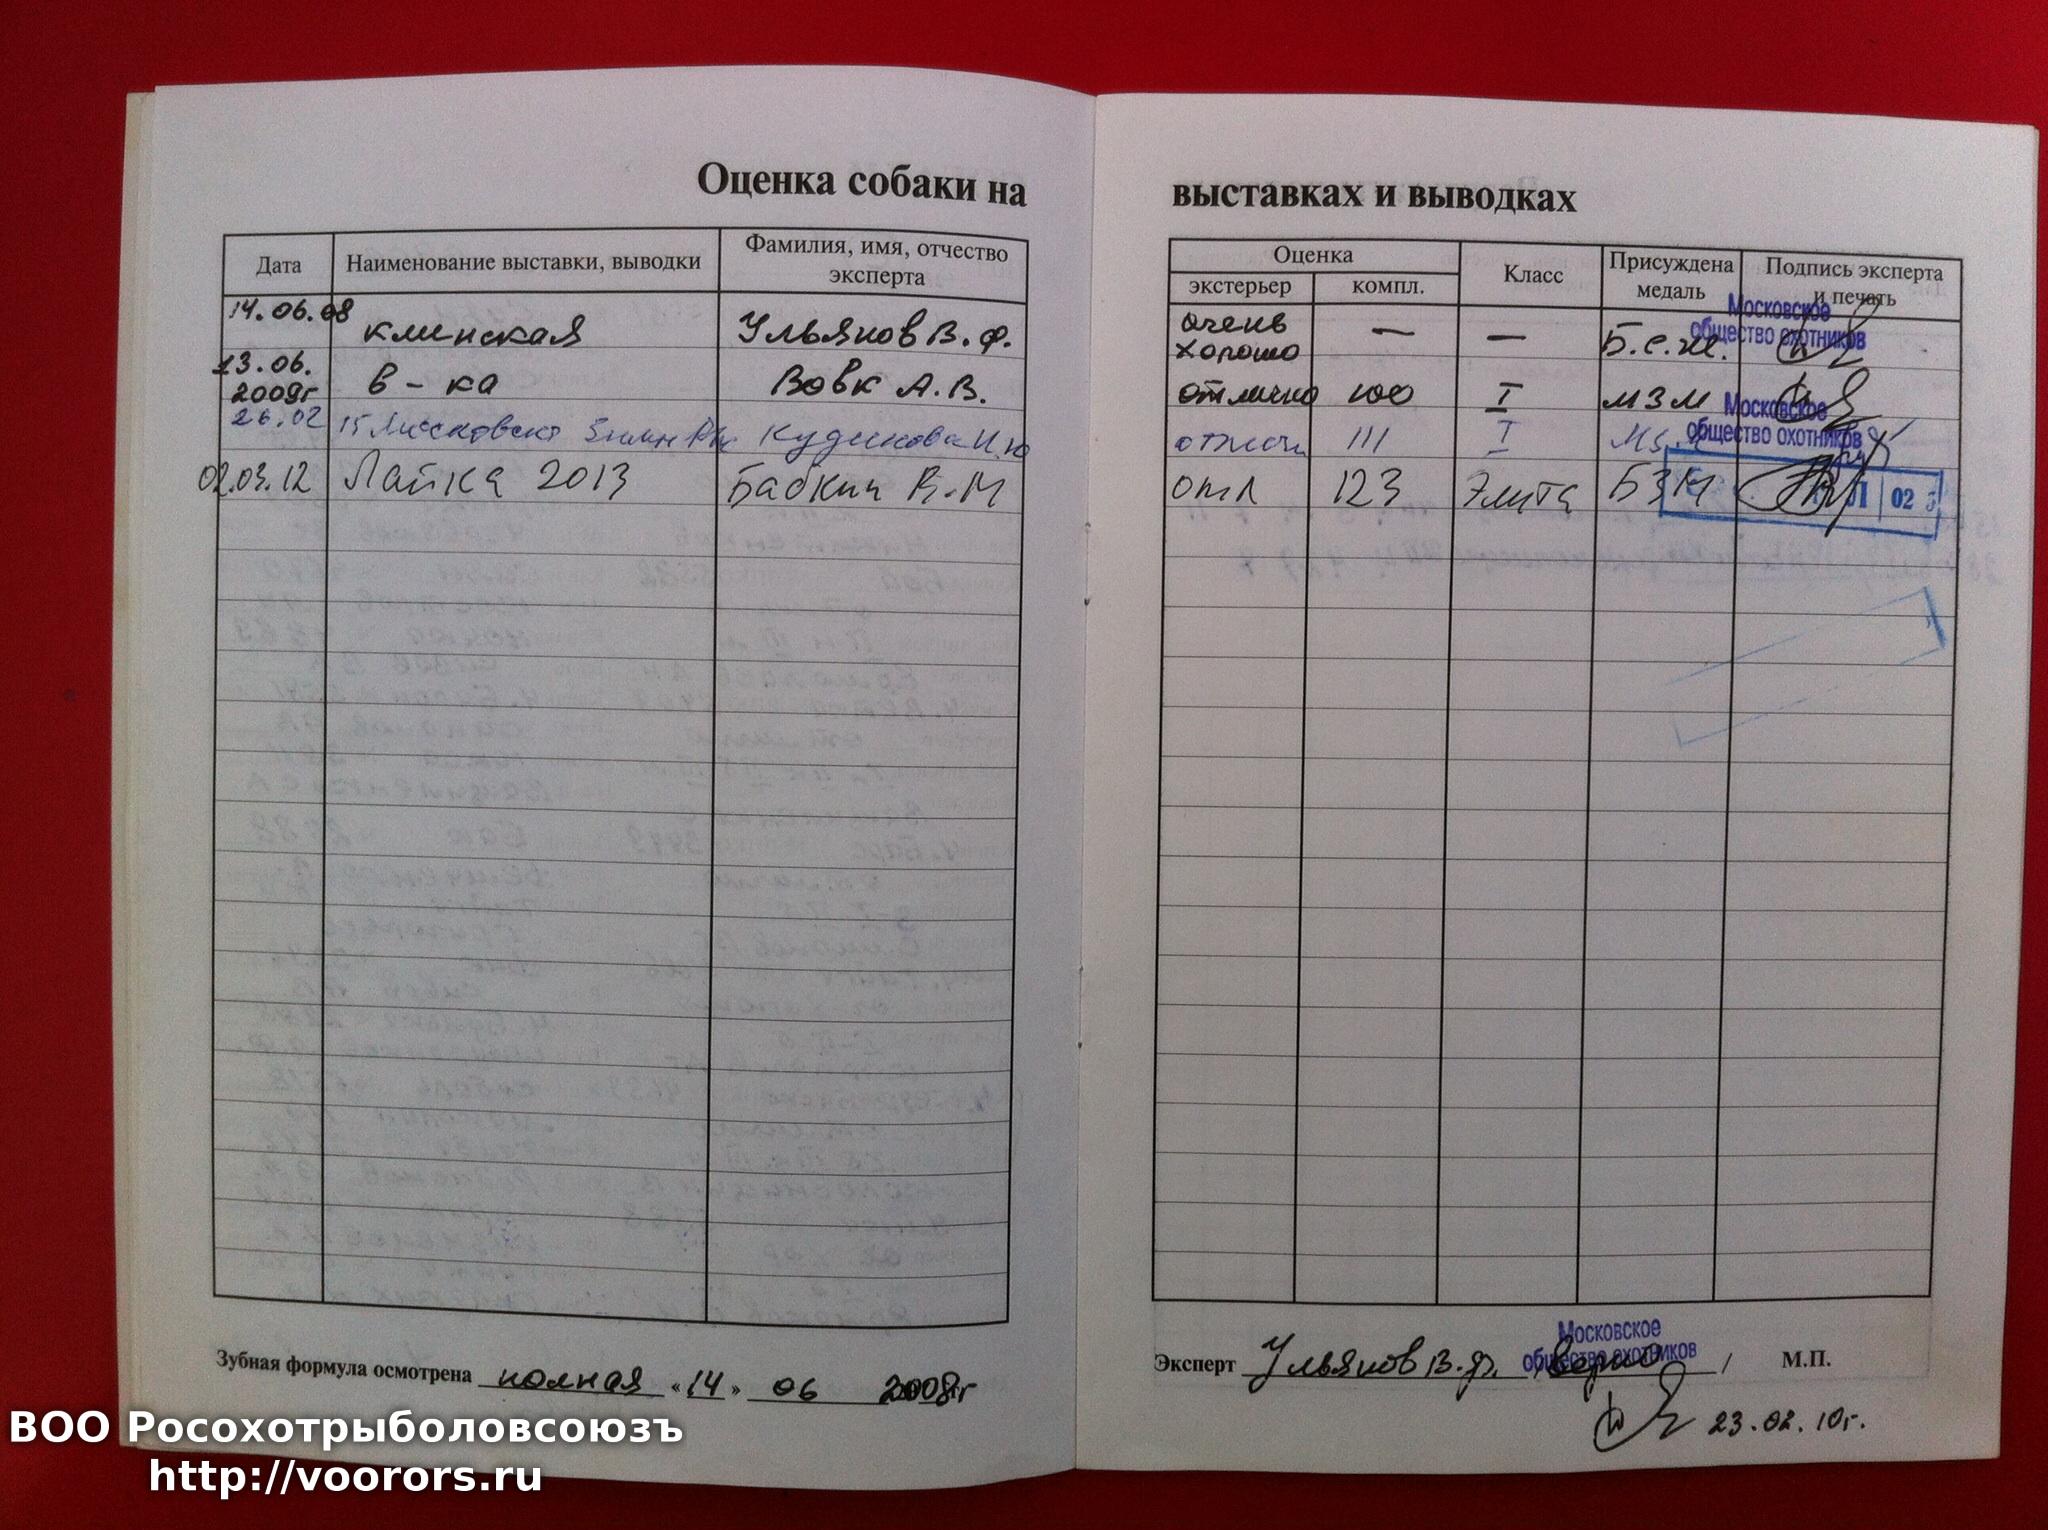 Оценка собаки на выставках и выводках
Дата Наименование выставки, выводки Фамилия, имя, отчество эксперта
Оценка Класс Присуждена медаль Подпись эксперта и печать
экстерьер компл.
14.06.08 клинская Ульянов В.Ф. очень хорошо — — Б.с.ж.
Московское
общество охотников
13.06.2009г в-ка Вовк А.В. отлично 100 I МЗМ
Московское
общество охотников
26.02 15 Московск 111 I
02.03.12 Лайка 2013 Бабкин В.М отл 123 Элита БЗМ
02
Зубная формула осмотрена полная «14» 06 2008г
Эксперт Ульянов В.Ф. /верно/ М.П.
Московское
общество охотников
23.02.10г.
ВОО Росохотрыболовсоюзъ
http://voorors.ru